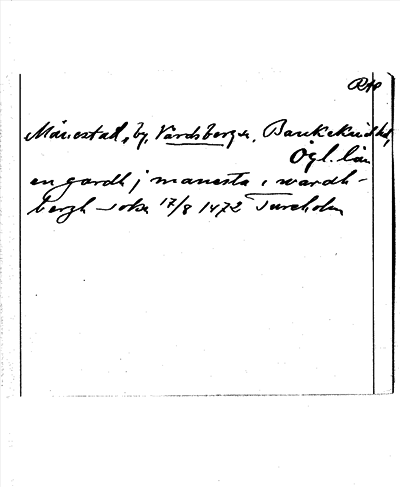 Månestad, by, Vårdsbergs s., Bankekinds hd,
Ögl. län
en gardh j manesta i wardh-
bergh sokn 17/8 1472 Tureholm